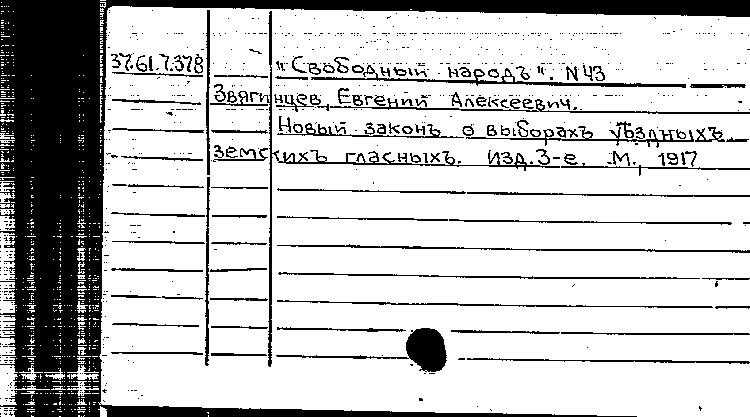 37.61.7.378 "Свободный народъ". N 43
Звягинцев, Евгений Алексеевич.
Новый законъ о выборахъ уѣздныхъ
земскихъ гласныхъ. Изд. 3-е. М., 1917